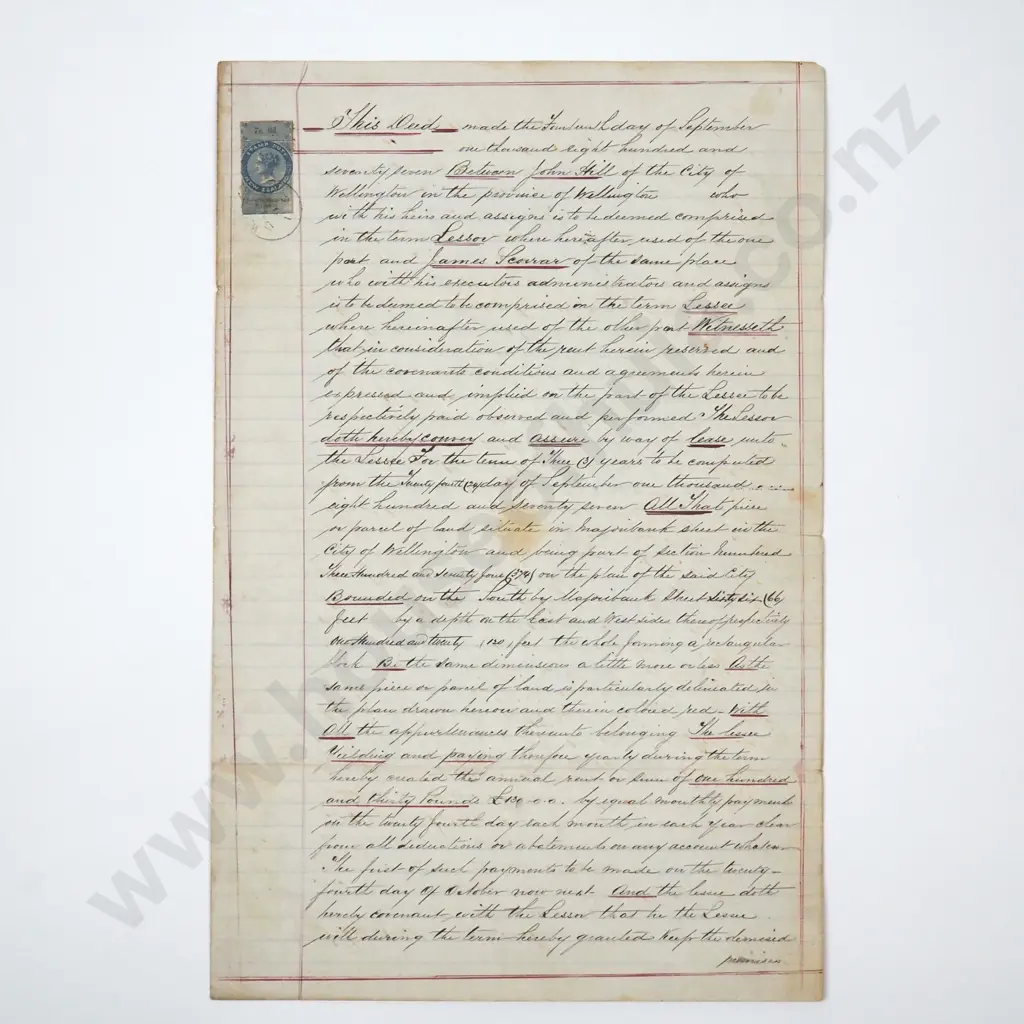 This Deed made the Fourteenth day of September
one thousand eight hundred and
seventy seven Between John Hill of the City of
Wellington in the province of Wellington who
with his heirs and assigns is to be deemed comprised
in the term Lessor where hereinafter used of the one
part and James Scurrar of the same place
who with his executors administrators and assigns
is to be deemed to be comprised in the term Lessee
where hereinafter used of the other part Witnesseth
that in consideration of the rent herein reserved and
of the covenants conditions and agreements herein
expressed and implied on the part of the Lessee to be
respectively paid observed and performed The Lessor
doth hereby convey and assure by way of lease unto
the Lessee For the term of Three (3) years to be computed
from the Twenty fourth (24) day of September one thousand
eight hundred and seventy seven All That piece
or parcel of land situate in Majoribank Street in the
City of Wellington and being part of section
Three Hundred and seventy four (374) on the plan of the said City
Bounded on the South by Majoribank Street sixty six (66)
feet by a depth on the East and West sides thereof respectively
One Hundred and twenty (120) feet the whole forming a rectangular
block Be the same dimensions a little more or less As the
same piece or parcel of land is particularly delineated in
the plan drawn hereon and therein colored red - With
All the appurtenances thereunto belonging The lessee
Yielding and paying therefor yearly during the term
hereby created the annual rent or sum of one hundred
and thirty Pounds £130-0-0. by equal monthly payments
on the twenty fourth day each month in each year clear
from all deductions or abatements on any account whatsoever
The first of such payments to be made on the twenty-
fourth day of October now next And the lessee doth
hereby covenant with the Lessor that he the Lessee
will during the term hereby granted Keep the demised
premises
www.h
co.nz